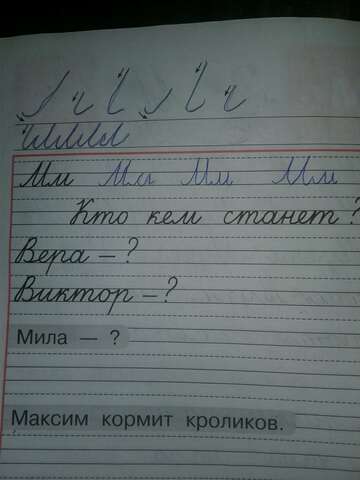 Мм Мм Мм Мм
Кто кем станет?
Вера – ?
Виктор – ?
Мила — ?
Максим кормит кроликов.